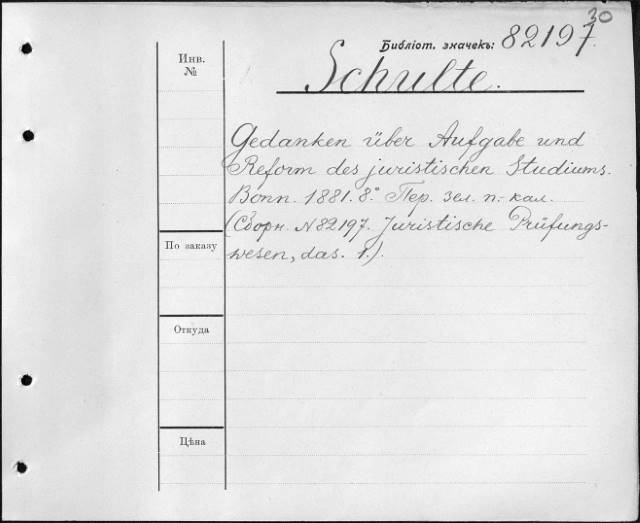 30
Библіот. значекъ: 82197.
Инв.
№
Schulte.
Gedanken über Aufgabe und
Reform des juristischen Studiums.
Bonn. 1881. 8.° Пер. зел. п.-кал.
(Сборн. N 82197. Juristische Prüfungs-
wesen, das. 1.).
По заказу
Откуда
Цѣна